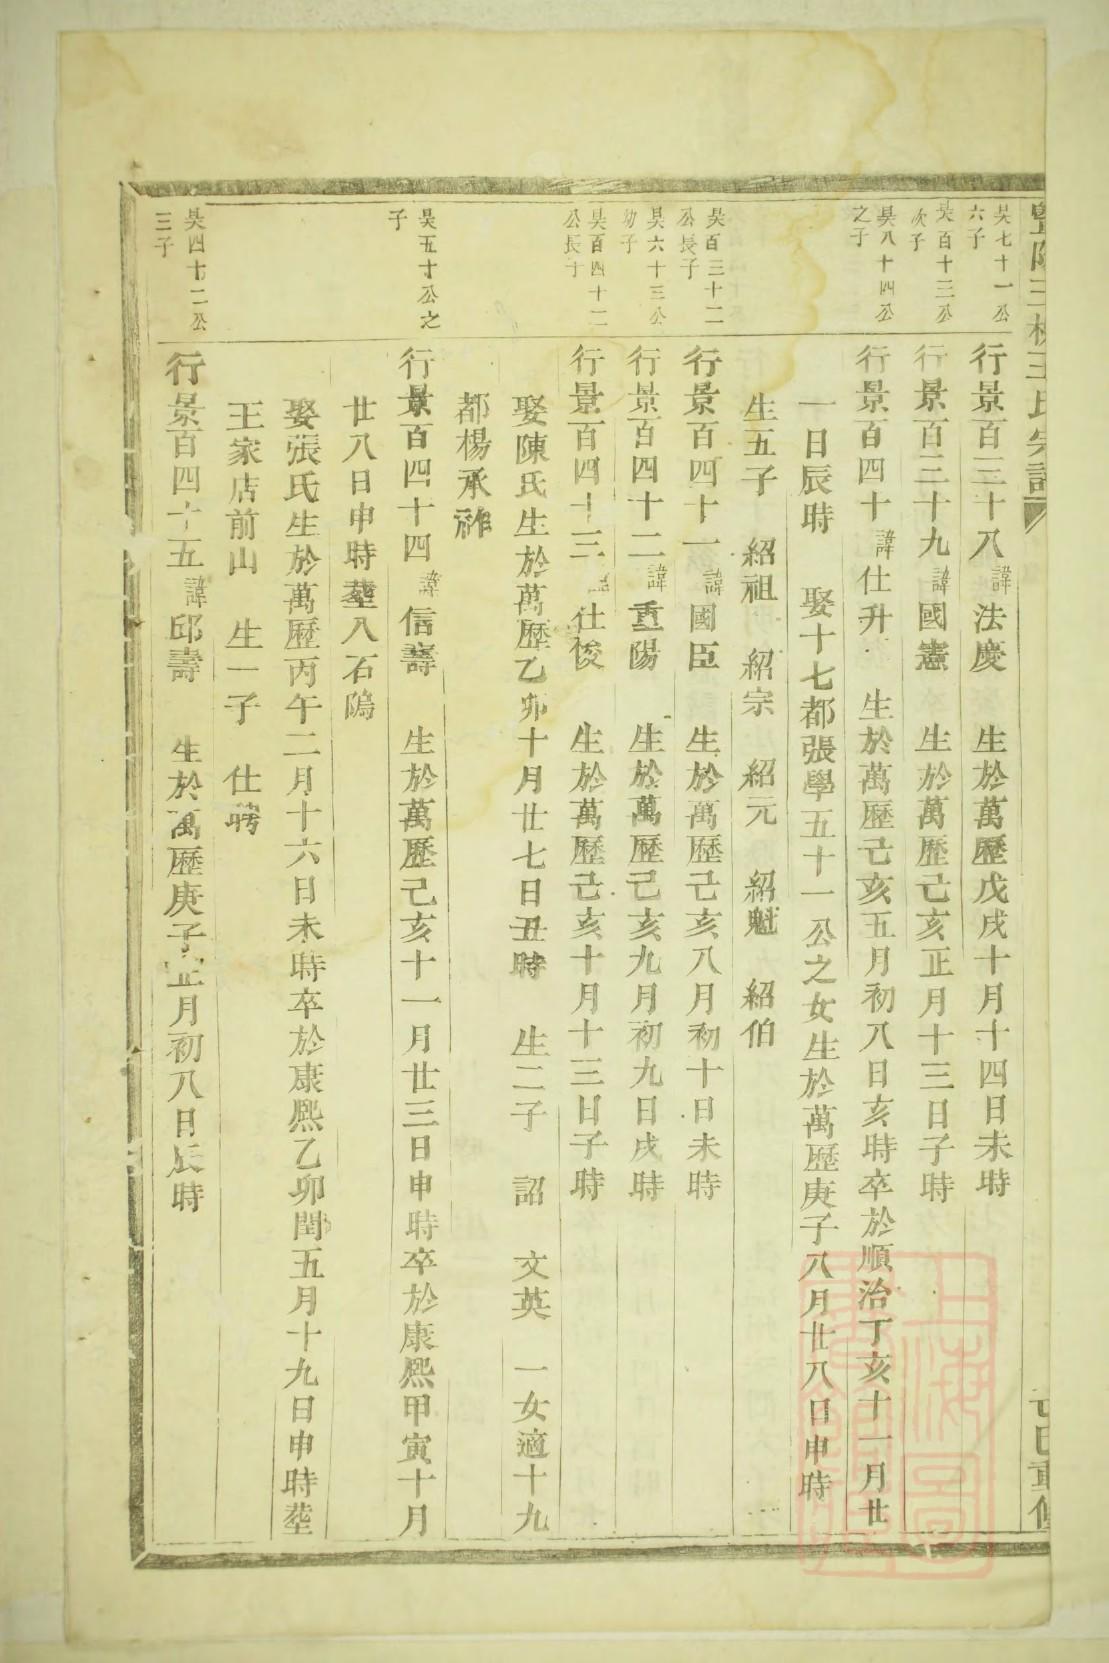 王氏宗譜
昊七十一公
六子
行景百三十八諱法慶 生於萬歷戊戌十月十四日未時
昊百十三公
次子
行景百三十九諱國憲 生於萬歷己亥正月十三日子時
昊八十四公
之子
行景百四十諱仕升 生於萬歷己亥五月初八日亥時卒於順治丁亥十一月廿
一日辰時 娶十七都張學五十一公之女生於萬歷庚子八月廿八日申時
生五子 紹祖 紹宗 紹元 紹魁 紹伯
昊百三十二
公長子
行景百四十一諱國臣 生於萬歷己亥八月初十日未時
昊六十三公
幼子
行景百四十二諱重陽 生於萬歷己亥九月初九日戌時
昊百四十二
公長子
行景百四十三 仕俊 生於萬歷己亥十月十三日子時
娶陳氏生於萬歷乙卯十月廿七日丑時 生二子 詔 文英 一女適十九
都楊承祚
昊五十公之
子
行景百四十四諱信壽 生於萬歷己亥十一月廿三日申時卒於康熙甲寅十月
廿八日申時塟八石隖
娶張氏生於萬歷丙午二月十六日未時卒於康熙乙卯閏五月十九日申時塟
王家店前山 生一子 仕聘
昊四十二公
三子
行景百四十五諱邱壽 生於萬歷庚子正月初八日辰時
重修